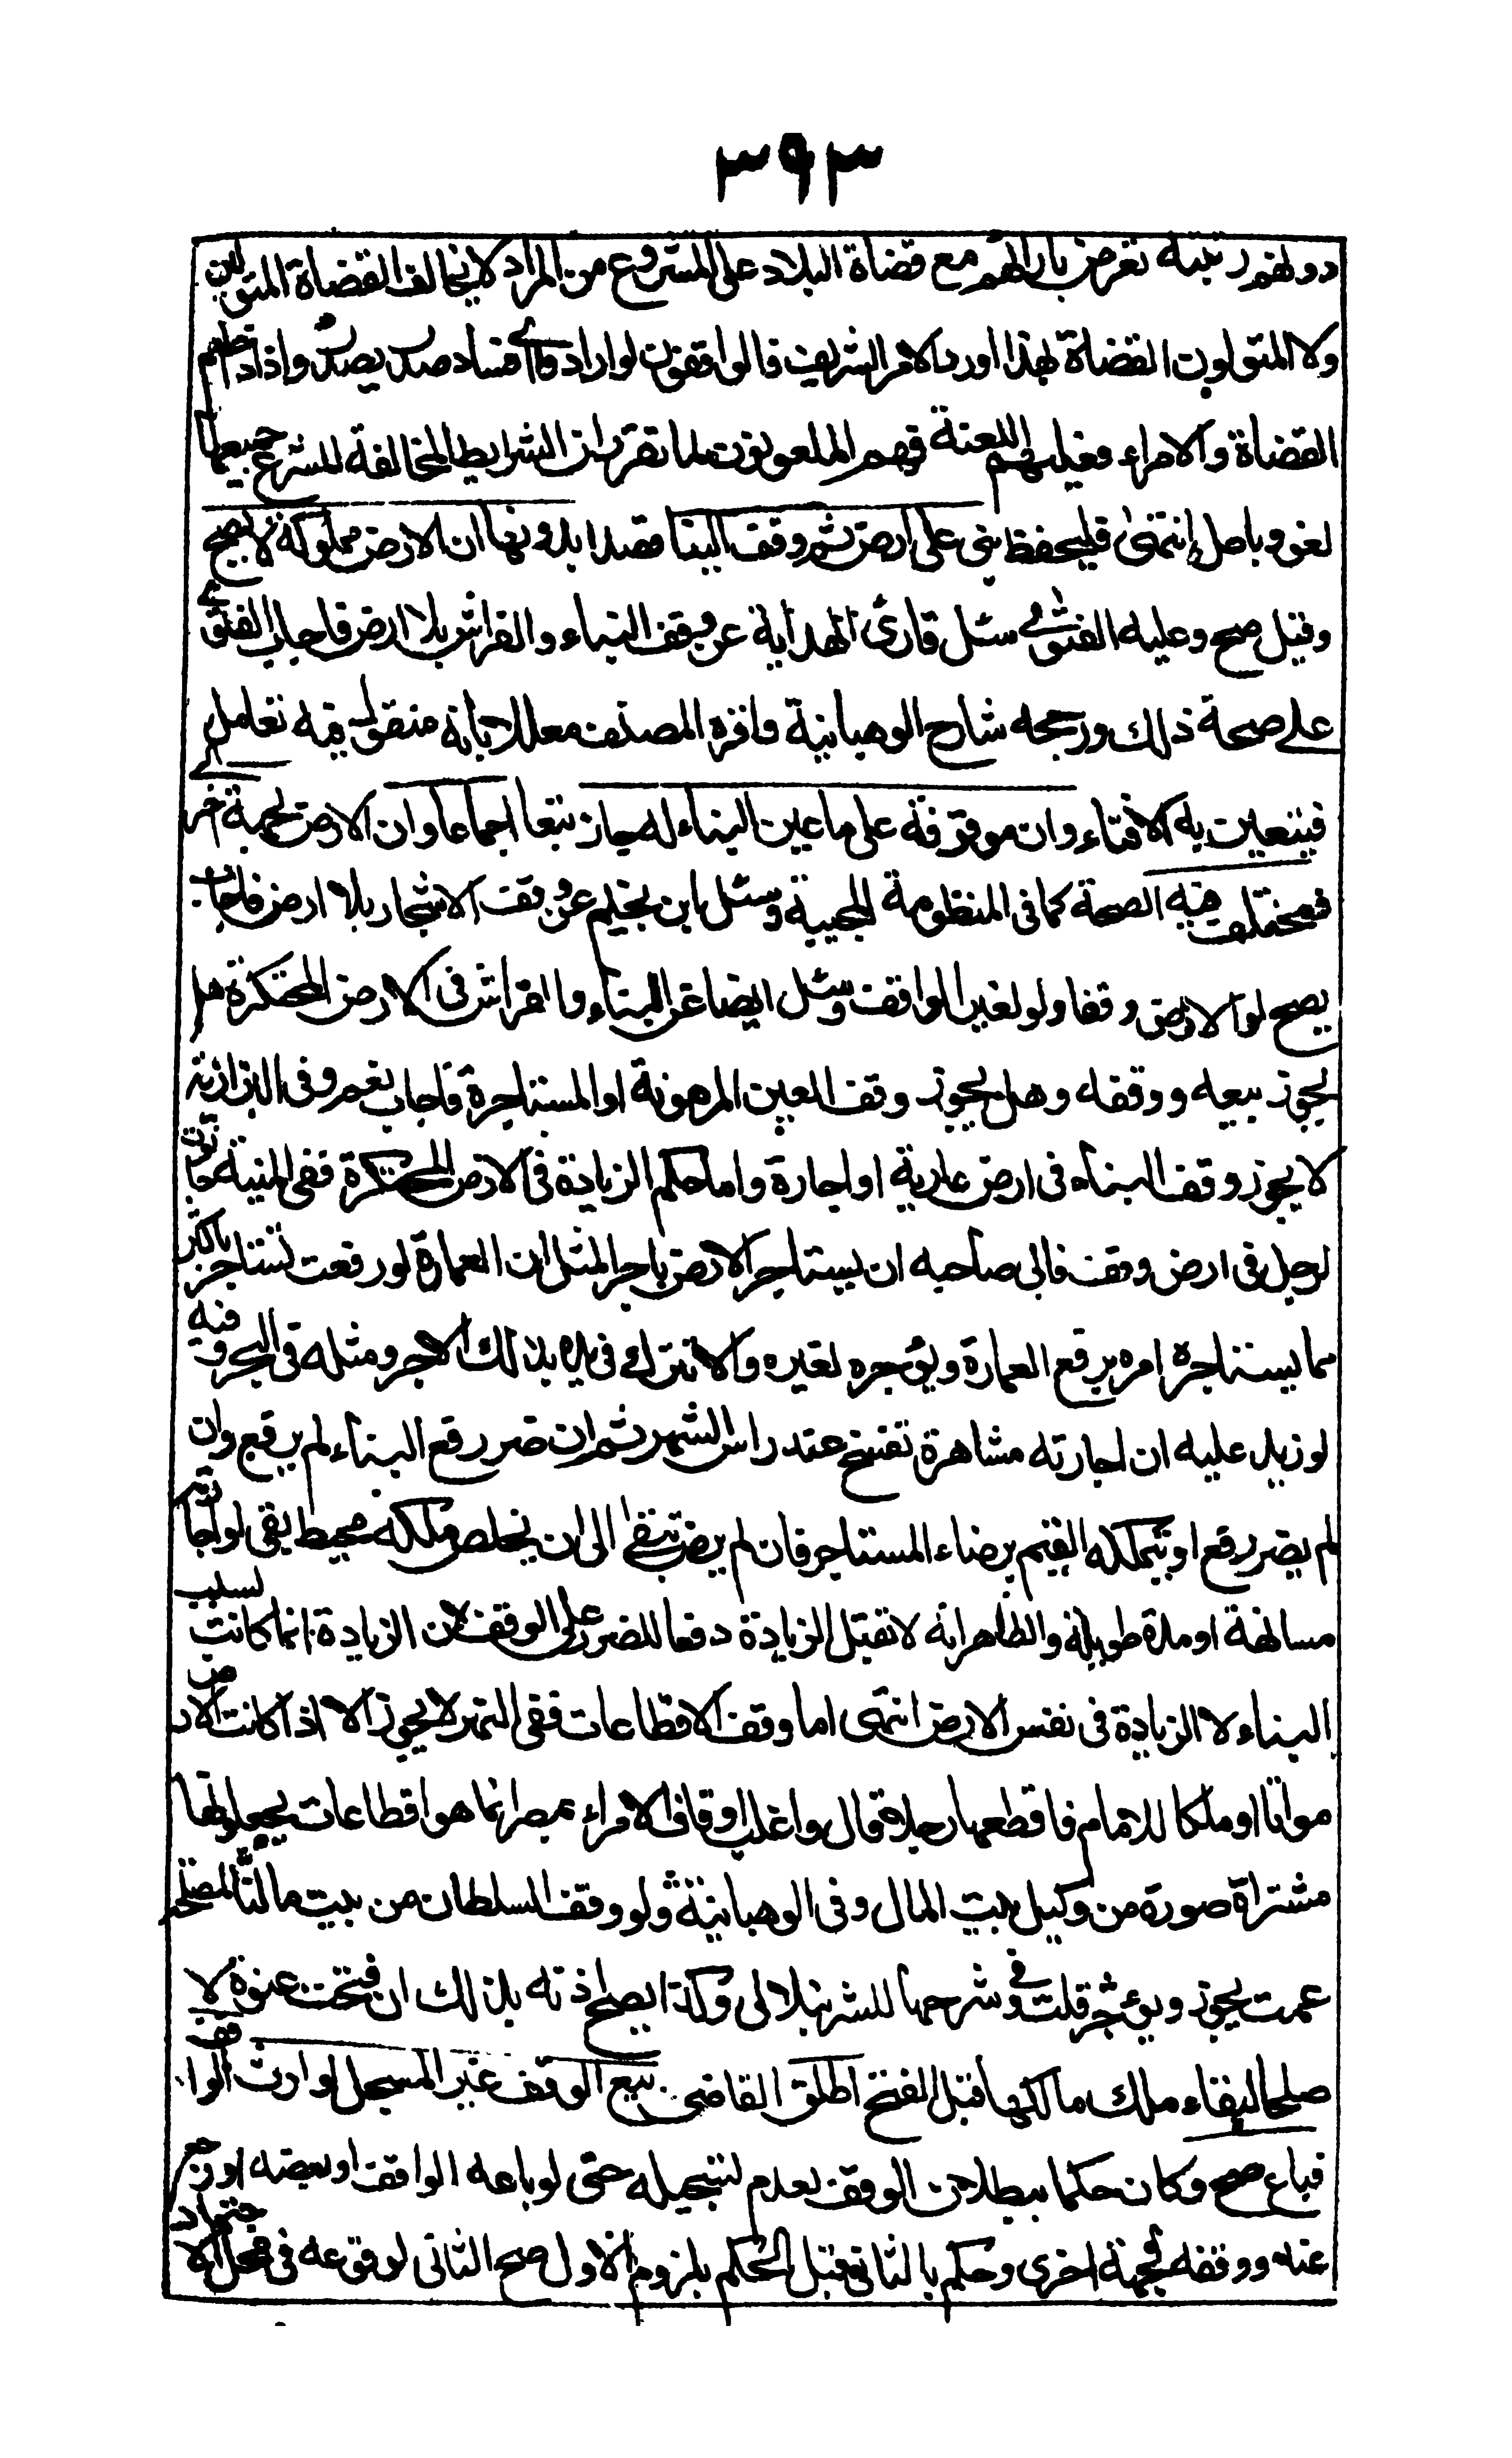 ٣٩٣
دولهم رتبه تعرض بارائهم مع قضاة البلاد على المشروع من المراد لا يخالف القضاة المتولين
ولا المتولون القضاة بهذا اورد الامر الشريف فالواقفون لو ارادوا اي فساد صدر يصدر واذا دخلهم
القضاة والامراء فعليهم اللعنة فهم الملعونون لما تقرر ان الشرايط المخالفة للشرع جميعها
لغو وباطل انتهى فليحفظ بنى على ارض ثم وقف البنا قصدا بدونها ان الارض مملوكة لا يصح
وقيل صح وعليه الفتوى سئل قارئ الهداية عن وقف البناء والغراش بلا ارض فاجاب الفتوى
على صحة ذلك ورجحه شارح الوهبانية واقره المصنف معللا بانه منقول فيه تعامل
فيتعين به الافتاء وان موقوفة على ما عين البناء له جاز تبعا اجماعا وان الارض لجهة اخرى
فمختلف فيه الصحة كما فى المنظومة المحبية وسئل ابن نجيم عن وقف الاشجار بلا ارض فاجاب
يصح لو الارض وقفا ولو لغير الواقف وسئل ايضا عن البناء والغراش فى الارض المحتكرة هل
يجوز بيعه ووقفه وهل يجوز وقف العين المرهونة او المستاجرة فاجاب نعم وفى البزازية
لا يجوز وقف البناء فى ارض عارية او اجارة واما حكم الزيادة فى الارض المحتكرة ففى المنية حانوت
لرجل فى ارض وقف فابى صاحبه ان يستاجر الارض باجر المثل ان العمارة لو رفعت تستاجر باكثر
مما يستاجره امره برفع العمارة ويؤجره لغيره والا تترك فى يده بذلك الاجر ومثله فى البحر وفيه
لو زيد عليه ان اجارته مشاهرة تفسخ عند راس الشهر ثم ان ضر رفع البناء لم يرفع وان
لم يضر رفع او يتملكه القيم برضاء المستاجر فان لم يرض تبقى الى ان يخلص ملكه محيط بقى لو اجارته
مسانهة او مدة طويلة والظاهر انه لا تقبل الزيادة دفعا للضرر على الوقف لان الزيادة انما كانت بسبب
البناء لا الزيادة فى نفس الارض انتهى اما وقف الاقطاعات ففى النهر لا يجوز الا اذا كانت الارض
مواتا او ملكا للامام فاقطعها رجلا قال واغلب اوقاف الامراء بمصر انما هو اقطاعات يجعلونها
مشتراة صورة من وكيل بيت المال وفى الوهبانية ولو وقف السلطان من بيت مالنا لمصلحة
عمت يجوز ويؤجر قلت وفى شرحها للشرنبلالى وكذا يصح اذنه بذلك ان فتحت عنوة لا
صلحا لبقاء ملك مالكها قبل الفتح اطلق القاضى بيع الوقف غير المسجل لوارث الواقف
فباع صح وكان حكما ببطلان الوقف لعدم تسجيله حتى لو باعه الواقف او بعضه او رجع
عنه ووقفه لجهة اخرى وحكم بالثانى قبل الحكم بلزوم الاول صح الثانى لوقوعه فى محل الاجتهاد